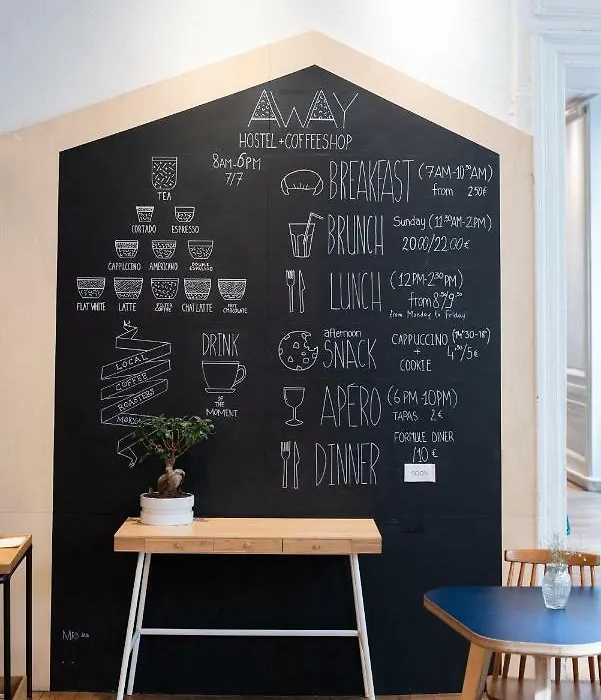 AWAY
HOSTEL + COFFEESHOP
8AM-6PM
7/7
TEA
CORTADO ESPRESSO
CAPPUCCINO AMERICANO DOUBLE ESPRESSO
FLAT WHITE LATTE FILTER COFFEE CHAI LATTE HOT CHOCOLATE
LOCAL
COFFEE
ROASTERS
DRINK
OF THE
MOMENT
BREAKFAST (7AM-10³⁰AM)
from 2.50€
BRUNCH Sunday (11³⁰AM-2PM)
20.00/22.00€
LUNCH (12PM-2³⁰PM)
from 8⁵⁰/9⁵⁰
from Monday to Friday
afternoon
SNACK CAPPUCCINO (14³⁰-18ʰ)
+ 4⁵⁰/5€
COOKIE
APÉRO (6PM-10PM)
TAPAS 2€
DINNER FORMULE DINER
10€
SOON